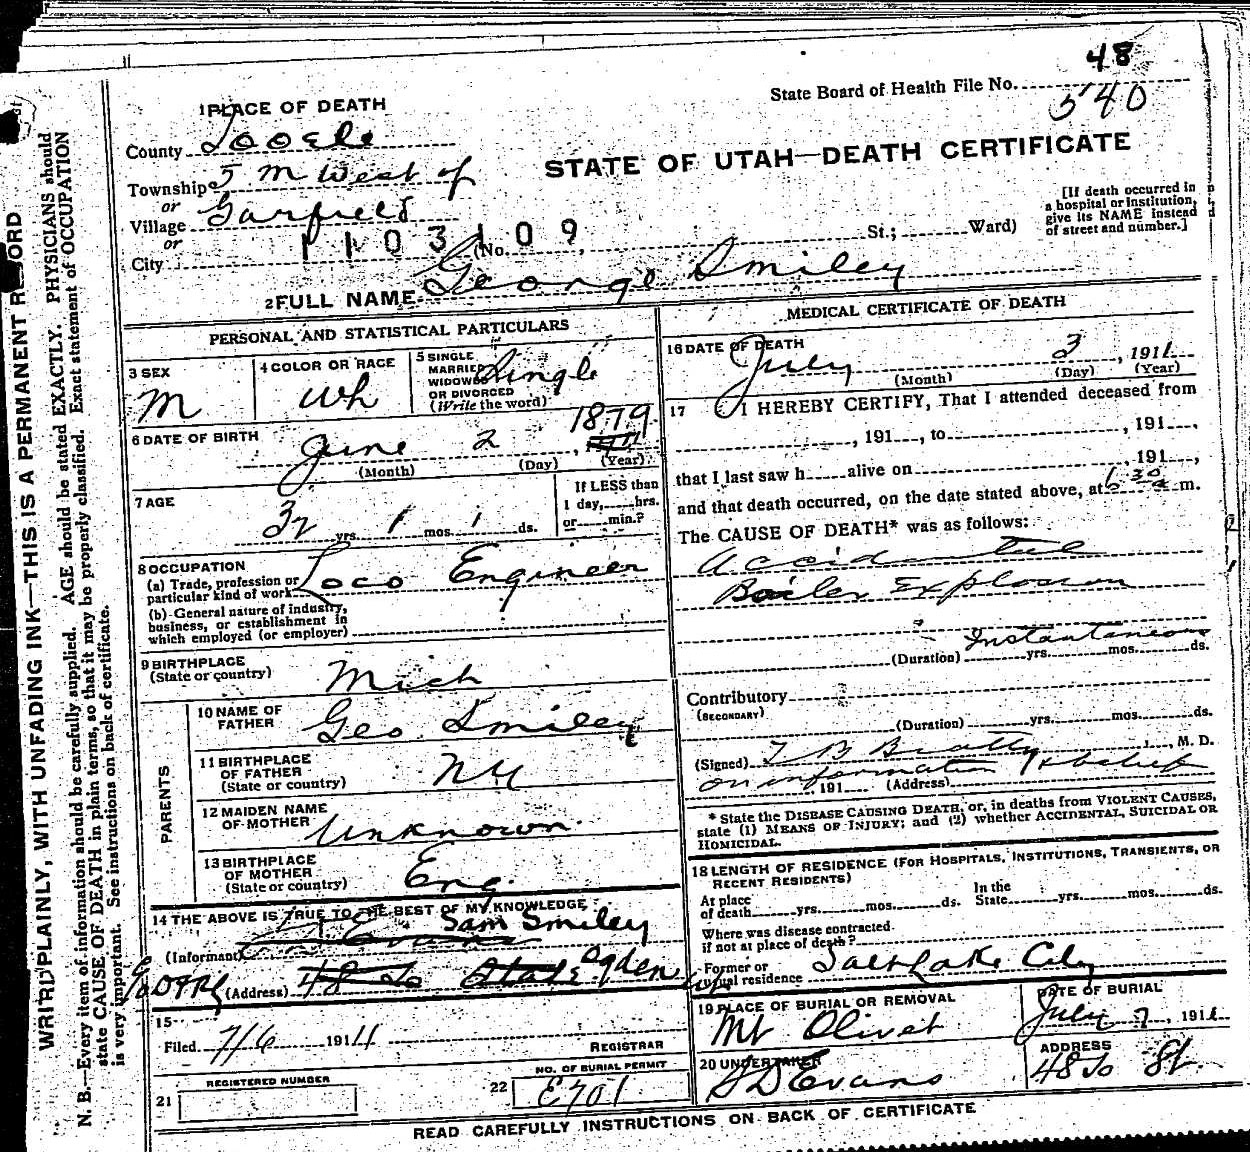 48
State Board of Health File No. 540
1 PLACE OF DEATH
County Tooele
STATE OF UTAH—DEATH CERTIFICATE
Township 5 m West of
or
Village Garfield
or
City
1103109
(No. St.; Ward)
[If death occurred in
a hospital or institution,
give its NAME instead
of street and number.]
2 FULL NAME George Smiley
PERSONAL AND STATISTICAL PARTICULARS
3 SEX
M
4 COLOR OR RACE
Wh
5 SINGLE
MARRIED
WIDOWED
OR DIVORCED
(Write the word)
Single
6 DATE OF BIRTH
June 2, 1879
(Month) (Day) (Year)
7 AGE
32 yrs. 1 mos. 1 ds.
If LESS than
1 day, hrs.
or min.?
8 OCCUPATION
(a) Trade, profession or
particular kind of work
Loco Engineer
(b) General nature of industry,
business, or establishment in
which employed (or employer)
9 BIRTHPLACE
(State or country)
Mich
PARENTS
10 NAME OF
FATHER
Geo Smiley
11 BIRTHPLACE
OF FATHER
(State or country)
NY
12 MAIDEN NAME
OF MOTHER
Unknown.
13 BIRTHPLACE
OF MOTHER
(State or country)
Eng.
14 THE ABOVE IS TRUE TO THE BEST OF MY KNOWLEDGE
Evans Sam Smiley
(Informant)
(Address) 48 So State Ogden
15
Filed 7/6 1911
REGISTRAR
REGISTERED NUMBER
21
NO. OF BURIAL PERMIT
22 E701
MEDICAL CERTIFICATE OF DEATH
16 DATE OF DEATH
July 3, 1911
(Month) (Day) (Year)
17 I HEREBY CERTIFY, That I attended deceased from
, 191 , to , 191 ,
that I last saw h alive on , 191 ,
and that death occurred, on the date stated above, at 6 30 a m.
The CAUSE OF DEATH* was as follows:
Accidental
Boiler Explosion
Instantaneous
(Duration) yrs. mos. ds.
Contributory
(SECONDARY)
(Duration) yrs. mos. ds.
(Signed) T B Beatty, M. D.
on information & belief
191 (Address)
* State the DISEASE CAUSING DEATH, or, in deaths from VIOLENT CAUSES,
state (1) MEANS OF INJURY; and (2) whether ACCIDENTAL, SUICIDAL OR
HOMICIDAL.
18 LENGTH OF RESIDENCE (FOR HOSPITALS, INSTITUTIONS, TRANSIENTS, OR
RECENT RESIDENTS)
At place
of death yrs. mos. ds.
In the
State yrs. mos. ds.
Where was disease contracted
if not at place of death?
Former or
usual residence Salt Lake City
19 PLACE OF BURIAL OR REMOVAL
Mt Olivet
DATE OF BURIAL
July 7, 1911
20 UNDERTAKER
S D Evans
ADDRESS
48 So St.
READ CAREFULLY INSTRUCTIONS ON BACK OF CERTIFICATE
WRITE PLAINLY, WITH UNFADING INK—THIS IS A PERMANENT RECORD
N. B.—Every item of information should be carefully supplied. AGE should be stated EXACTLY. PHYSICIANS should
state CAUSE OF DEATH in plain terms, so that it may be properly classified. Exact statement of OCCUPATION
is very important. See instructions on back of certificate.